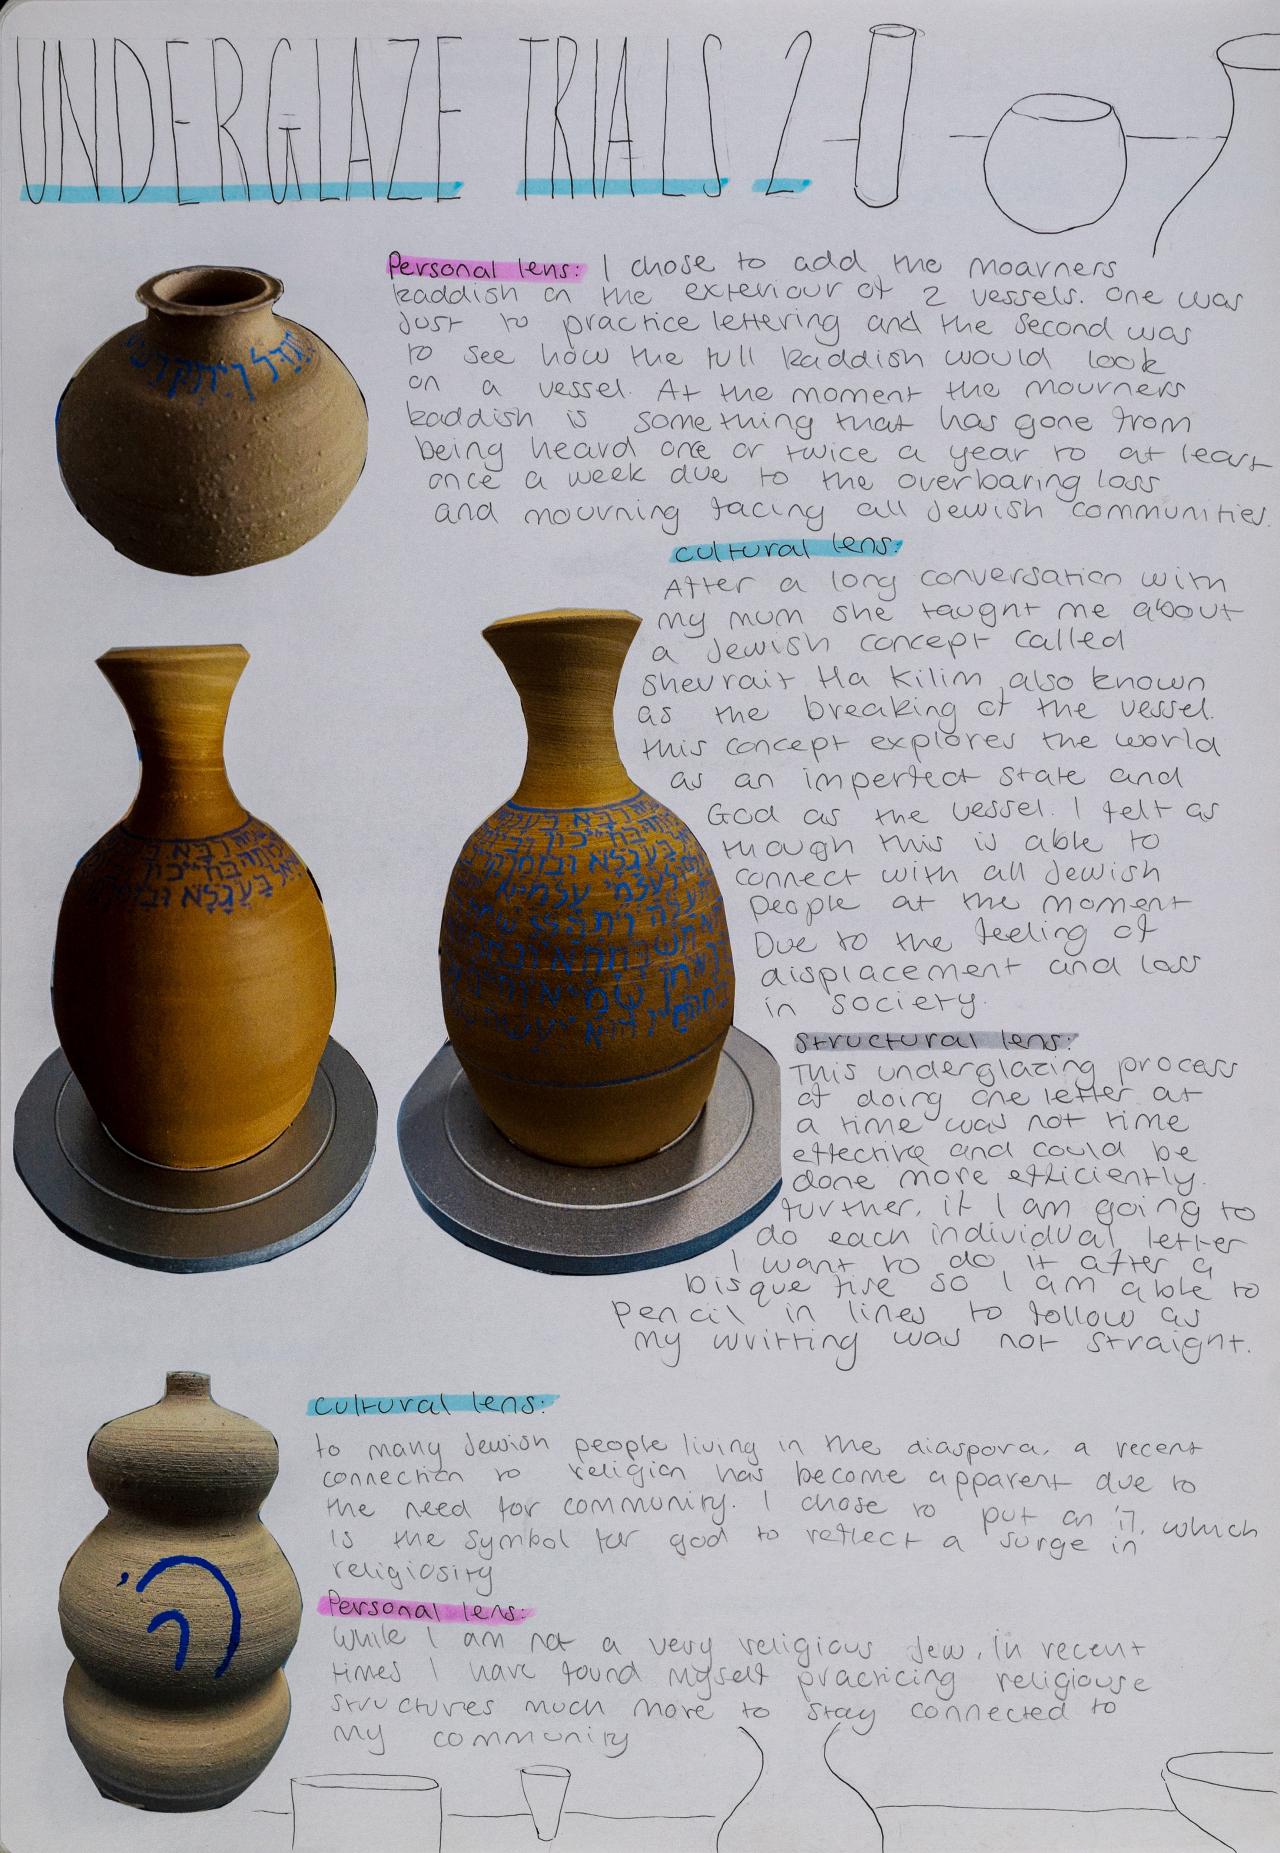 UNDERGLAZE TRIALS 2
Personal lens: I chose to add the moarners
kaddish on the exteriour of 2 vessels. One was
Just to practice lettering and the second was
to see how the full kaddish would look
on a vessel. At the moment the mourners
kaddish is something that has gone from
being heard one or twice a year to at least
once a week due to the overbaring loss
and mourning facing all Jewish communities.
cultural lens:
After a long conversation with
my mum she taught me about
a Jewish concept called
Shevrait Ha Kilim, also known
as the breaking of the vessel.
this concept explores the world
as an imperfect state and
God as the vessel. I felt as
though this is able to
connect with all Jewish
people at the moment
Due to the feeling of
displacement and loss
in society.
Structural lens:
This underglazing process
of doing one letter at
a time was not time
effective and could be
done more efficiently.
further, if I am going to
do each individual letter
I want to do it after a
bisque fire so I am able to
pencil in lines to follow as
my writting was not straight.
cultural lens:
to many Jewish people living in the diaspora, a recent
connection to religion has become apparent due to
the need for community. I chose to put an 'ה, which
is the symbol for god to reflect a surge in
religiosity
Personal lens:
While I am not a very religious Jew, in recent
times I have found myself practicing religiouse
structures much more to stay connected to
my community
ה'